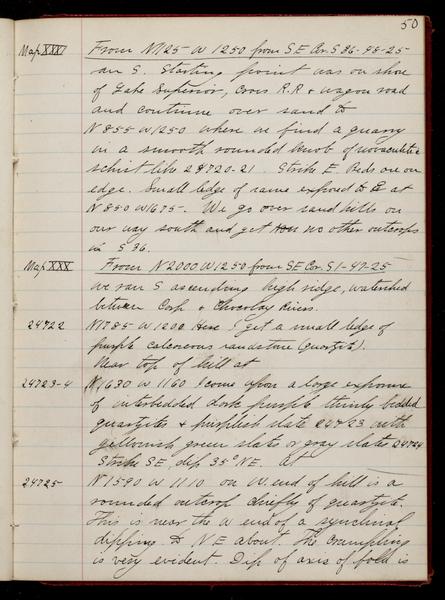 50
Map XXXI From N1125 - W 1250 from S.E Cor. S 36-48-25
ran S. Starting point was on shore
of Lake Superior, Cross R.R & wagon road
and continue over sand to
N 855 W 1250 where we find a quarry
in a smooth rounded knob of novaculitic
schist like 24720-21. Strike E. Beds are on
edge. Small ledge of same exposed to E at
N 850 W 1675-. We go over sand hills on
our way south and get no other outcrops
in S 36.
Map XXX From N 2000 W 1250 from SE Cor. S 1-47-25
we ran S ascending high ridge, watershed
between Carp & Chocolay Rivers.
24722 N1785 W 1200 Here I get a small ledge of
purple calcareous sandstone (quartzite).
Near top of hill at
24723-4 N 1630 W 1160 I come upon a large exposure
of interbedded dark purple thinly bedded
quartzite & purplish slate 24723 with
yellowish green slate or gray slates 24724
Strike SE, dip 35° NE. At
24725 N 1590 W 1110 on W end of hill is a
rounded outcrop chiefly of quartzite.
This is near the W end of a synclinal
dipping to N E about. The crumpling
is very evident. Dip of axis of fold is